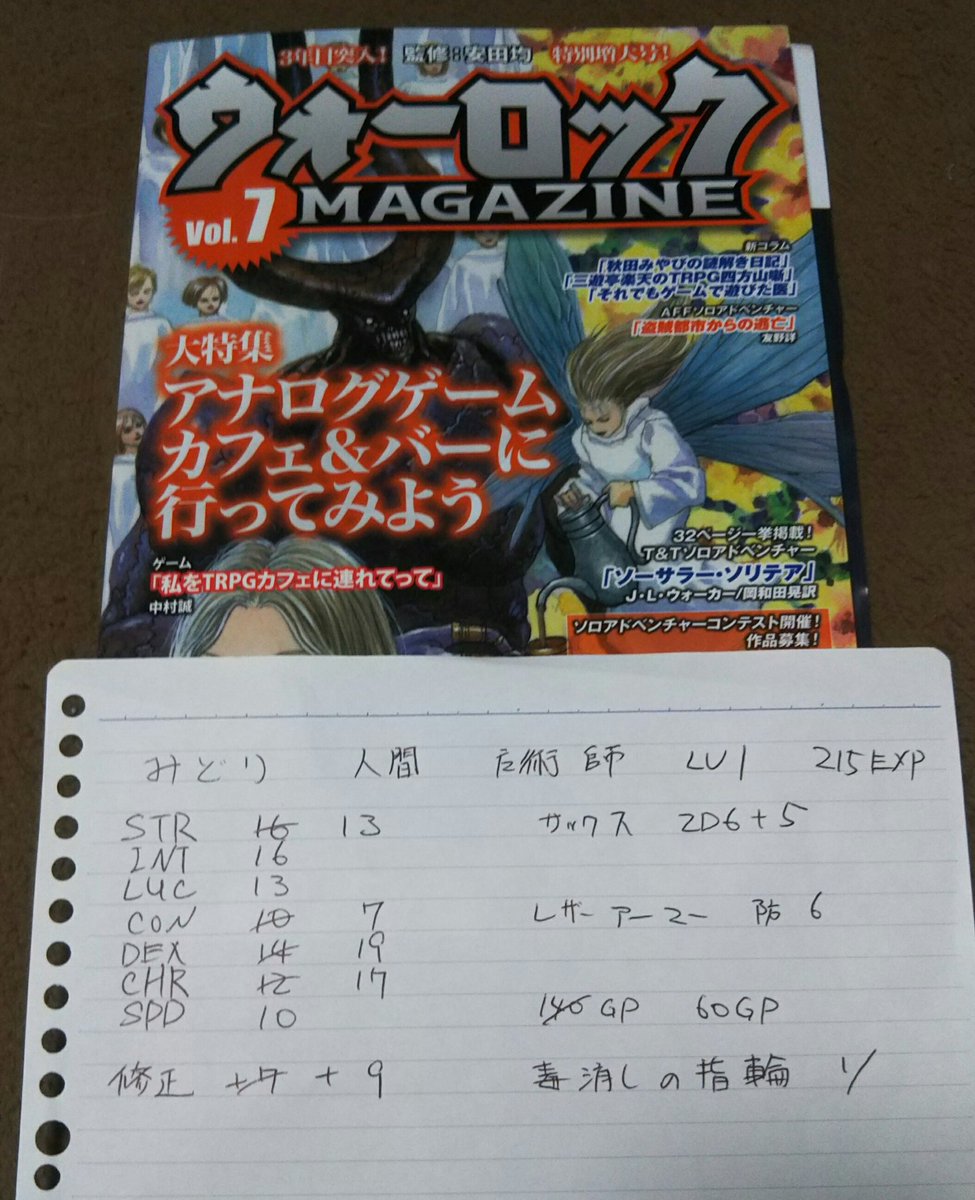 3年目突入! 監修:安田均 特別増大号!
ウォーロック
MAGAZINE
Vol. 7
新コラム
「秋田みやびの謎解き日記」
「三遊亭楽天のTRPG四方山噺」
「それでもゲームで遊びた医」
AFFソロアドベンチャー
「盗賊都市からの逃亡」
友野詳
大特集
アナログゲーム
カフェ&バーに
行ってみよう
32ページ一挙掲載!
T&Tソロアドベンチャー
『ソーサラー・ソリテア』
J・L・ウォーカー/岡和田晃訳
ゲーム
「私をTRPGカフェに連れてって」
中村誠
ソロアドベンチャーコンテスト開催!
作品募集!
みどり 人間 術師 LV1 215EXP
STR 16 13 サックス 2D6+5
INT 16
LUC 13
CON 10 7 レザーアーマー 防 6
DEX 14 19
CHR 12 17
SPD 10 146GP 60GP
修正 +7 +9 毒消しの指輪